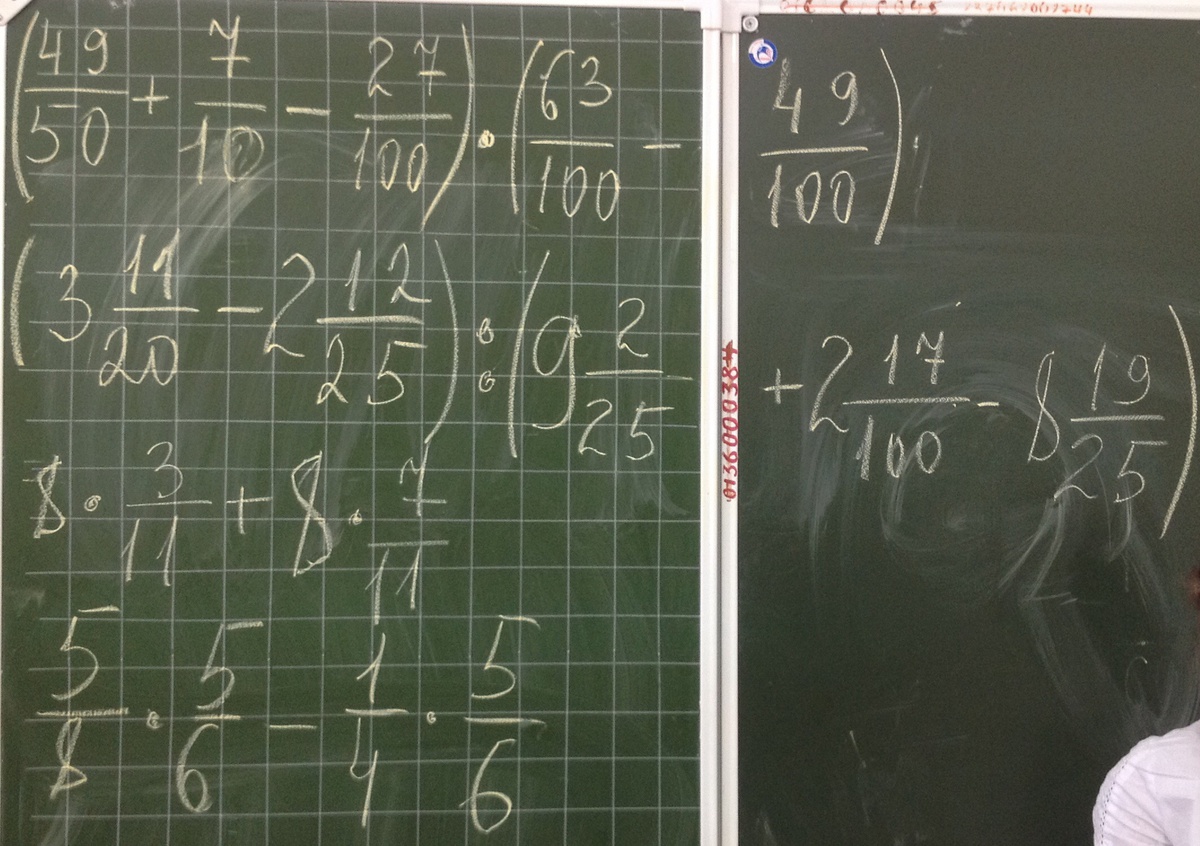 (49/50 + 7/10 − 27/100) · (63/100 − 49/100)
(3 11/20 − 2 12/25) : (9 2/25 + 2 17/100 − 8 19/25)
8 · 3/11 + 8 · 7/11
5/8 · 5/6 − 1/4 · 5/6
0136000384